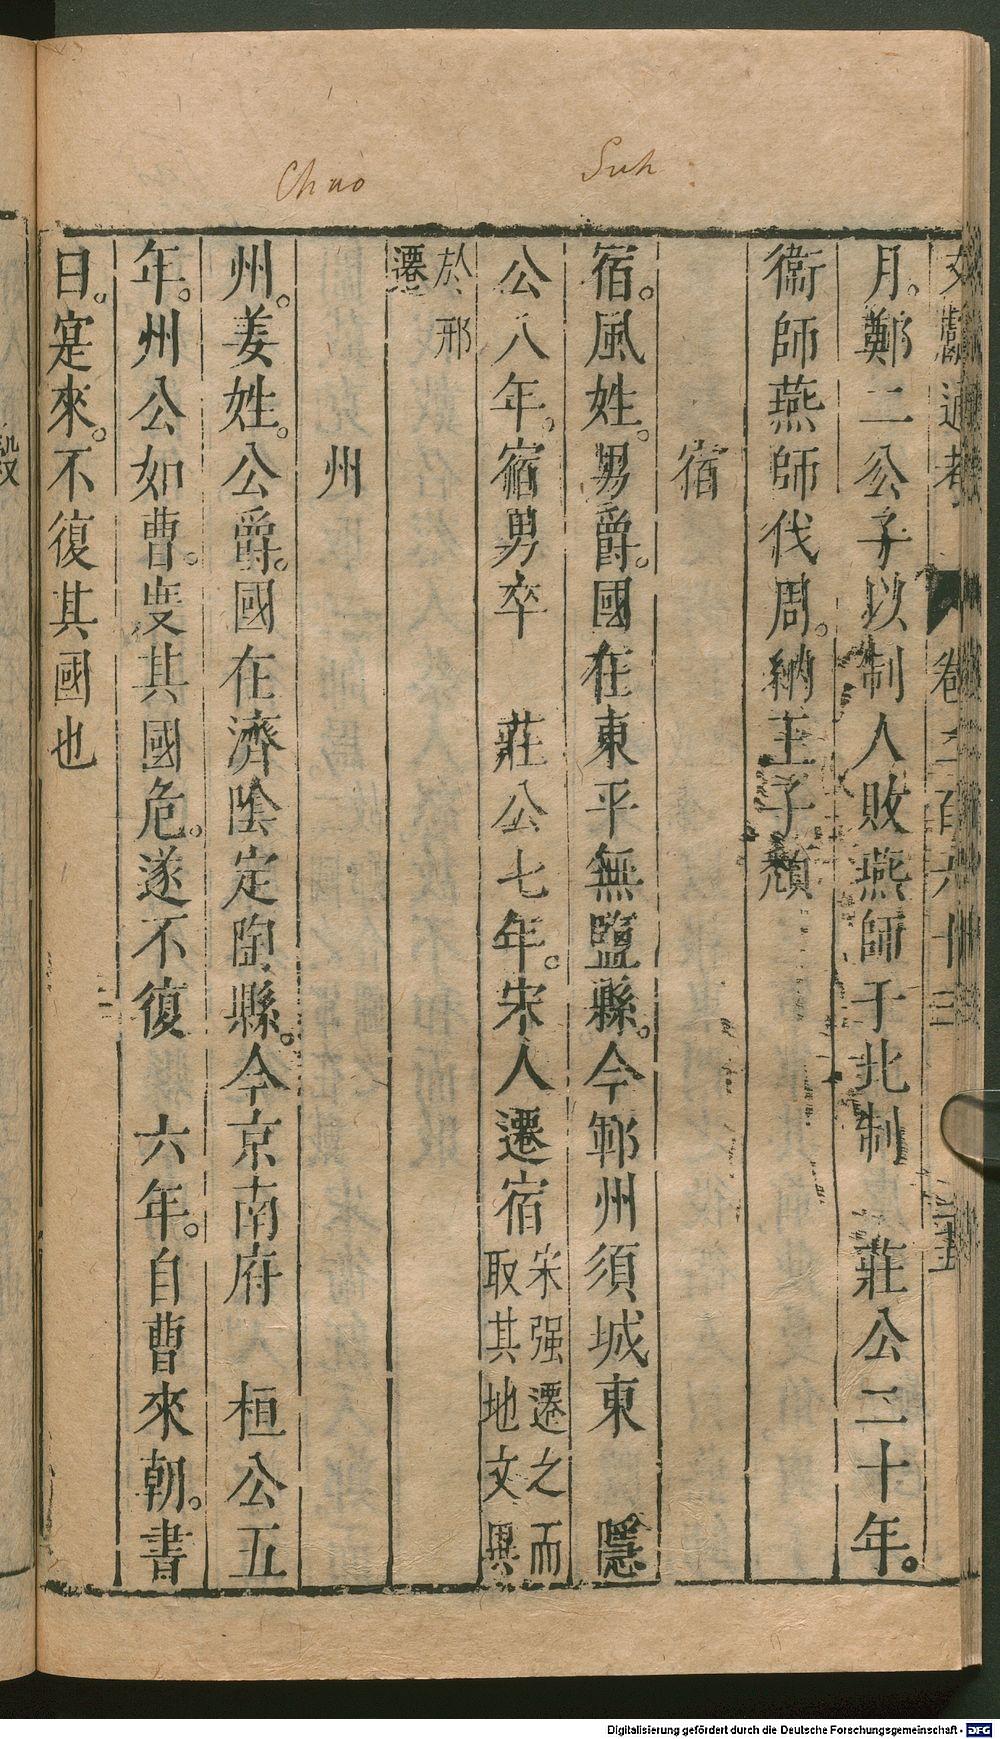 Chao
Suh
文獻通考 卷二百六十三 三五
月。鄭二公子以制人敗燕師于北制 莊公二十年。
衞師燕師伐周。納王子頹
宿
宿。風姓。男爵。國在東平無鹽縣。今鄆州須城東 隱
公八年。宿男卒 莊公七年。宋人遷宿 宋强遷之而
取其地文異
於邢
遷
州
州。姜姓。公爵。國在濟陰定陶縣。今京南府 桓公五
年。州公如曹。度其國危。遂不復 六年。自曹來朝。書
曰。寔來。不復其國也
Digitalisierung gefördert durch die Deutsche Forschungsgemeinschaft - DFG